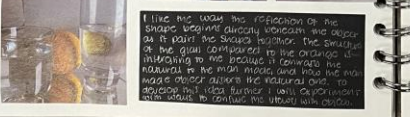 I like the way the reflection of the
shape begins directly beneath the object
as it pairs the shapes together. The structure
of the glass compared to the orange is
interesting to me because it contrasts the
natural to the man made, and how the man
made object distorts the natural one. To
develop this idea further I will experiment
with ways to confuse the viewer with objects.